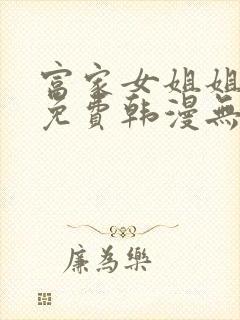 富家女姐姐
免費韩漫無
廉為樂